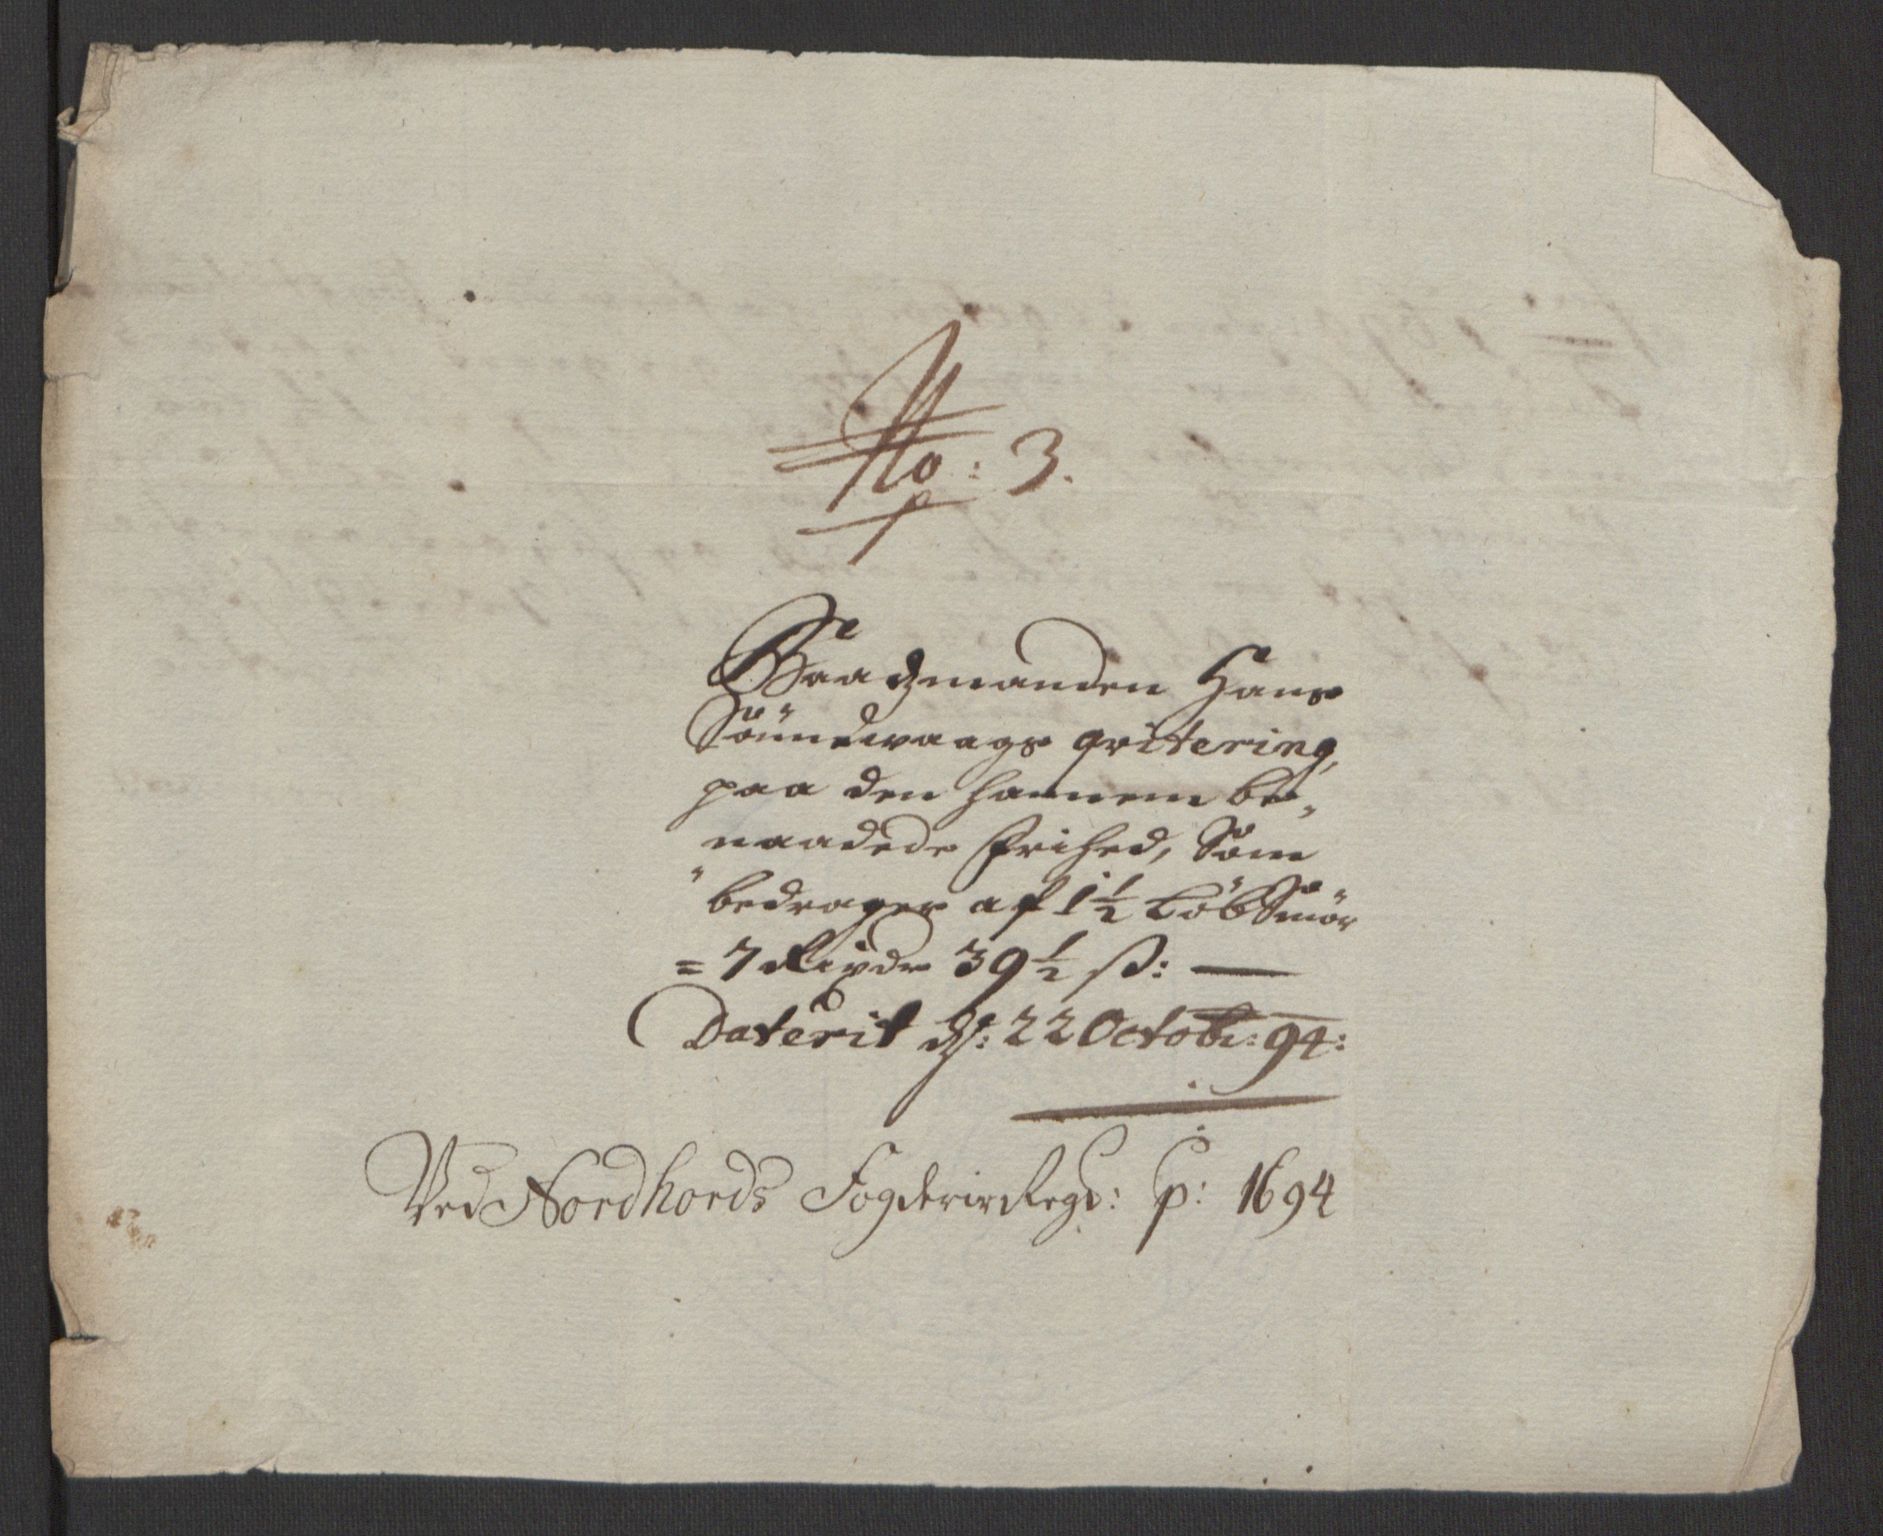 No: 3.
Baadzmanden Hans
Sönnewaags qvitering,
paa den hannem be„
naadede Frihed, Som
„bedrager af 1½ LöbSmör
= 7 Rixdr 39½ ß: —
Daterit dz: 22 Octobr: 94:
Ved Nordhords Fogderies Regs: p: 1694